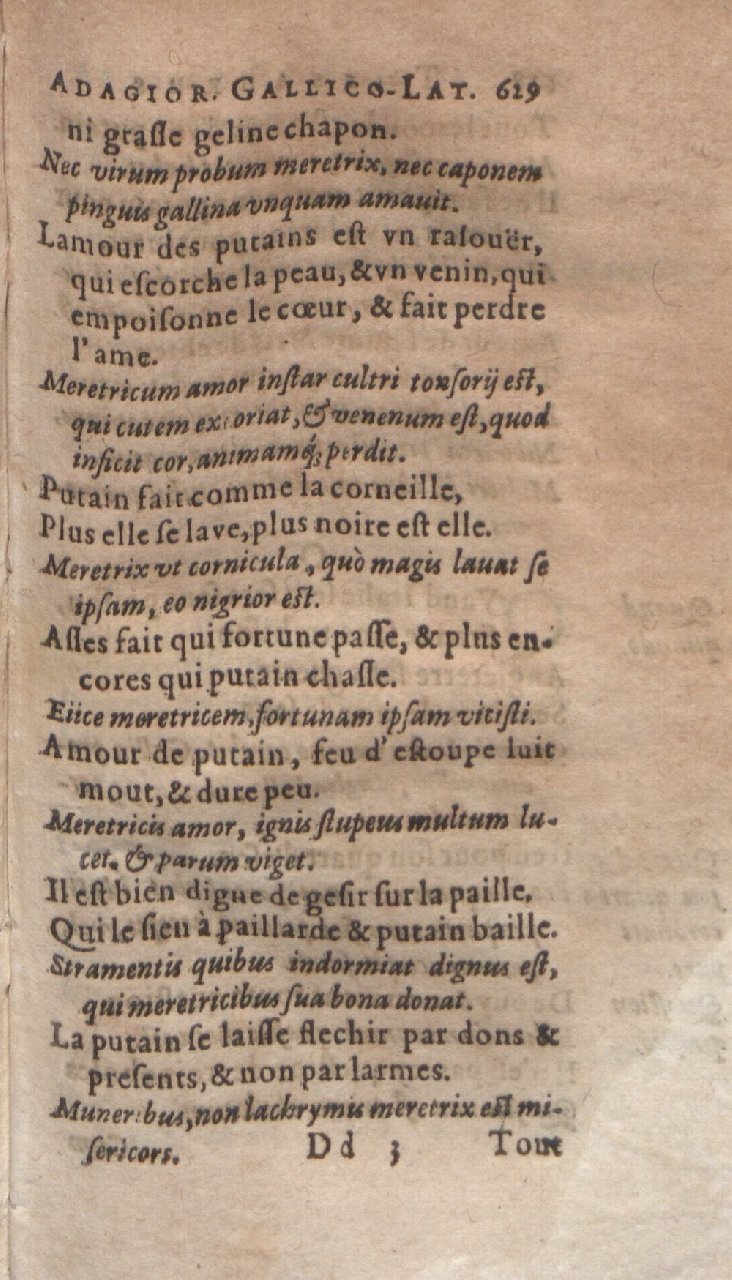 ADAGIOR. GALLICO-LAT. 629
ni grasse geline chapon.
Nec virum probum meretrix, nec caponem
pinguis gallina vnquam amauit.
Lamour des putains est vn rasouër,
qui escorche la peau, & vn venin, qui
empoisonne le cœur, & fait perdre
l'ame.
Meretricum amor instar cultri tonsorij est,
qui cutem excoriat, & venenum est, quod
inficit cor, animamq́; perdit.
Putain fait comme la corneille,
Plus elle se lave, plus noire est elle.
Meretrix vt cornicula, quò magis lauat se
ipsam, eo nigrior est.
Asses fait qui fortune passe, & plus en-
cores qui putain chasse.
Eiice meretricem, fortunam ipsam vicisti.
Amour de putain, feu d'estoupe luit
mout, & dure peu.
Meretricis amor, ignis stupeus multum lu-
cet. & parum viget.
Il est bien digne de gesir sur la paille,
Qui le sien à paillarde & putain baille.
Stramentis quibus indormiat dignus est,
qui meretricibus sua bona donat.
La putain se laisse flechir par dons &
presents, & non par larmes.
Muneribus, non lachrymis meretrix est mi-
sericors. Dd 3 Tout